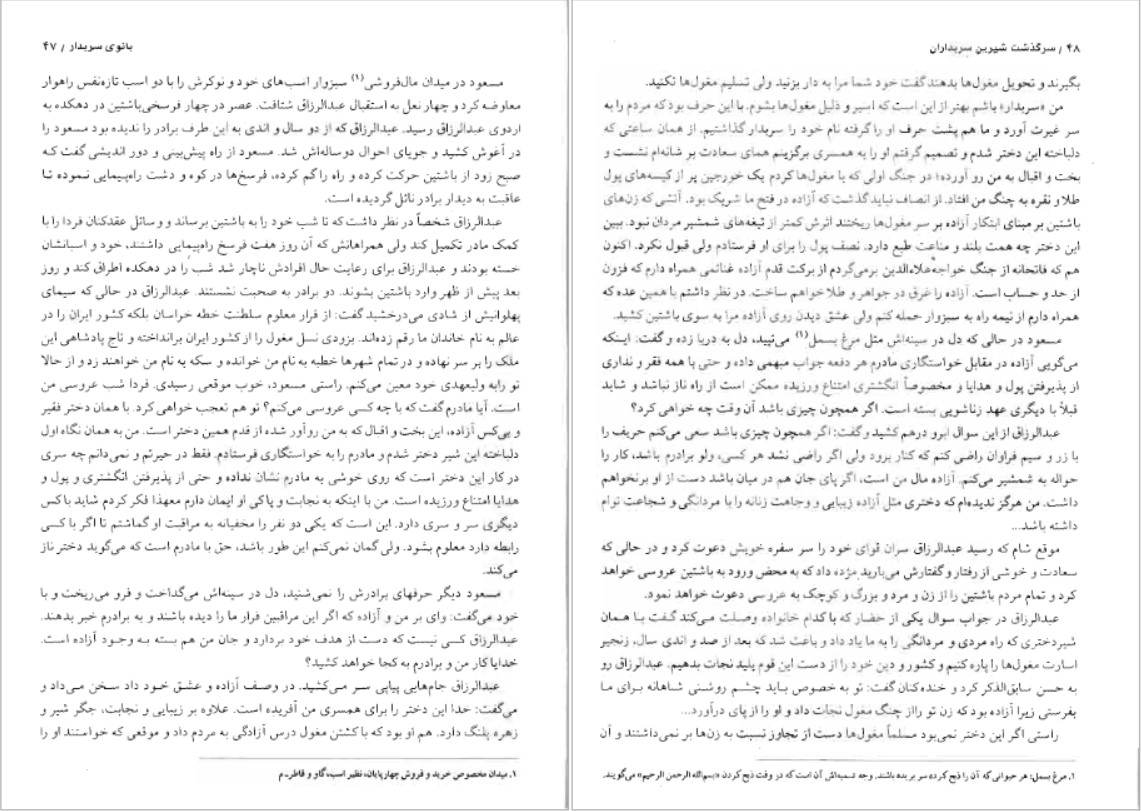 بانوی سربدار / ۴۷
مسعود در میدان مال‌فروشی(۱) سبزوار اسب‌های خود و نوکرش را با دو اسب تازه‌نفس راهوار
معاوضه کرد و چهار نعل به استقبال عبدالرزاق شتافت. عصر در چهار فرسخی‌باشتین در دهکده به
اردوی عبدالرزاق رسید. عبدالرزاق که از دو سال و اندی به این طرف برادر را ندیده بود مسعود را
در آغوش کشید و جویای احوال دوساله‌اش شد. مسعود از راه پیش‌بینی و دور اندیشی گفت که
صبح زود از باشتین حرکت کرده و راه را گم کرده، فرسخ‌ها در کوه و دشت راه‌پیمایی نموده تا
عاقبت به دیدار برادر نائل گردیده است.
عبدالرزاق شخصاً در نظر داشت که تا شب خود را به باشتین برساند و وسائل عقدکنان فردا را با
کمک مادر تکمیل کند ولی همراهانش که آن روز هفت فرسخ راه‌پیمایی داشتند، خود و اسبانشان
خسته بودند و عبدالرزاق برای رعایت حال افرادش ناچار شد شب را در دهکده اطراق کند و روز
بعد پیش از ظهر وارد باشتین بشوند. دو برادر به صحبت نشستند. عبدالرزاق در حالی که سیمای
پهلوانیش از شادی می‌درخشید گفت: از قرار معلوم سلطنت خطه خراسان بلکه کشور ایران را در
عالم به نام خاندان ما رقم زده‌اند. بزودی نسل مغول را از کشور ایران برانداخته و تاج پادشاهی این
ملک را بر سر نهاده و در تمام شهرها خطبه به نام من خوانده و سکه به نام من خواهند زد و از حالا
تو رابه ولیعهدی خود معین می‌کنم. راستی مسعود، خوب موقعی رسیدی. فردا شب عروسی من
است. آیا مادرم گفت که با چه کسی عروسی می‌کنم؟ تو هم تعجب خواهی کرد. با همان دختر فقیر
و بی‌کس آزاده، این بخت و اقبال که به من روآور شده از قدم همین دختر است. من به همان نگاه اول
دلباخته این شیر دختر شدم و مادرم را به خواستگاری فرستادم. فقط در حیرتم و نمی‌دانم چه سری
در کار این دختر است که روی خوشی به مادرم نشان نداده و حتی از پذیرفتن انگشتری و پول و
هدایا امتناع ورزیده است. من با اینکه به نجابت و پاکی او ایمان دارم معهذا فکر کردم شاید با کس
دیگری سر و سری دارد. این است که یکی دو نفر را مخفیانه به مراقبت او گماشتم تا اگر با کسی
رابطه دارد معلوم بشود. ولی گمان نمی‌کنم این طور باشد، حق با مادرم است که می‌گوید دختر ناز
می‌کند.
مسعود دیگر حرفهای برادرش را نمی‌شنید، دل در سینه‌اش می‌گداخت و فرو می‌ریخت و با
خود می‌گفت: وای بر من و آزاده که اگر این مراقبین فرار ما را دیده باشند و به برادرم خبر بدهند.
عبدالرزاق کسی نیست که دست از هدف خود بردارد و جان من هم بسته به وجود آزاده است.
خدایا کار من و برادرم به کجا خواهد کشید؟
عبدالرزاق جام‌هایی پیاپی سر می‌کشید. در وصف آزاده و عشق خود داد سخن می‌داد و
می‌گفت: خدا این دختر را برای همسری من آفریده است. علاوه بر زیبایی و نجابت، جگر شیر و
زهره پلنگ دارد. هم او بود که با کشتن مغول درس آزادگی به مردم داد و موقعی که خواستند او را
۱. میدان مخصوص خرید و فروش چهارپایان، نظیر اسب، گاو و قاطر.ـ م
۴۸ / سرگذشت شیرین سربداران
بگیرند و تحویل مغول‌ها بدهند گفت خود شما مرا به دار بزنید ولی تسلیم مغول‌ها نکنید.
من «سربدار» باشم بهتر از این است که اسیر و ذلیل مغول‌ها بشوم. با این حرف بود که مردم را به
سر غیرت آورد و ما هم پشت حرف او را گرفته نام خود را سربدار گذاشتیم. از همان ساعتی که
دلباخته این دختر شدم و تصمیم گرفتم او را به همسری برگزینم همای سعادت بر شانه‌ام نشست و
بخت و اقبال به من رو آورده؛ در جنگ اولی که با مغول‌ها کردم یک خورجین پر از کیسه‌های پول
طلا و نقره به چنگ من افتاد. از انصاف نباید گذشت که آزاده در فتح ما شریک بود. آتشی که زن‌های
باشتین بر مبنای ابتکار آزاده بر سر مغول‌ها ریختند اثرش کمتر از تیغه‌های شمشیر مردان نبود. ببین
این دختر چه همت بلند و مناعت طبع دارد. نصف پول را برای او فرستادم ولی قبول نکرد. اکنون
هم که فاتحانه از جنگ خواجه علاءالدین برمی‌گردم از برکت قدم آزاده غنائمی همراه دارم که فزون
از حد و حساب است. آزاده را غرق در جواهر و طلا خواهم ساخت. در نظر داشتم با همین عده که
همراه دارم از نیمه راه به سبزوار حمله کنم ولی عشق دیدن روی آزاده مرا به سوی باشتین کشید.
مسعود در حالی که دل در سینه‌اش مثل مرغ بسمل(۱) می‌تپید، دل به دریا زده و گفت: اینکه
می‌گویی آزاده در مقابل خواستگاری مادرم هر دفعه جواب مبهمی داده و حتی با همه فقر و نداری
از پذیرفتن پول و هدایا و مخصوصاً انگشتری امتناع ورزیده ممکن است از راه ناز نباشد و شاید
قبلاً با دیگری عهد زناشویی بسته است. اگر همچون چیزی باشد آن وقت چه خواهی کرد؟
عبدالرزاق از این سوال ابرو درهم کشید و گفت: اگر همچون چیزی باشد سعی می‌کنم حریف را
با زر و سیم فراوان راضی کنم که کنار برود ولی اگر راضی نشد هر کسی، ولو برادرم باشد، کار را
حواله به شمشیر می‌کنم. آزاده مال من است، اگر پای جان هم در میان باشد دست از او برنخواهم
داشت. من هرگز ندیده‌ام که دختری مثل آزاده زیبایی و وجاهت زنانه را با مردانگی و شجاعت توام
داشته باشد...
موقع شام که رسید عبدالرزاق سران قوای خود را سر سفره خویش دعوت کرد و در حالی که
سعادت و خوشی از رفتار و گفتارش می‌بارید مژده داد که به محض ورود به باشتین عروسی خواهد
کرد و تمام مردم باشتین را از زن و مرد و بزرگ و کوچک به عروسی دعوت خواهد نمود.
عبدالرزاق در جواب سوال یکی از حضار که با کدام خانواده وصلت می‌کند گفت با همان
شیردختری که راه مردی و مردانگی را به ما یاد داد و باعث شد که بعد از صد و اندی سال، زنجیر
اسارت مغول‌ها را پاره کنیم و کشور و دین خود را از دست این قوم پلید نجات بدهیم. عبدالرزاق رو
به حسن سابق‌الذکر کرد و خنده‌کنان گفت: تو به خصوص باید چشم روشنی شاهانه برای ما
بفرستی زیرا آزاده بود که زن تو رااز چنگ مغول نجات داد و او را از پای درآورد...
راستی اگر این دختر نمی‌بود مسلماً مغول‌ها دست از تجاوز نسبت به زن‌ها بر نمی‌داشتند و آن
۱. مرغ بسمل: هر حیوانی که آن را ذبح کرده سر بریده باشند. وجه تسمیه‌اش آن است که در وقت ذبح کردن «بسم‌الله الرحمن الرحیم» می‌گویند.